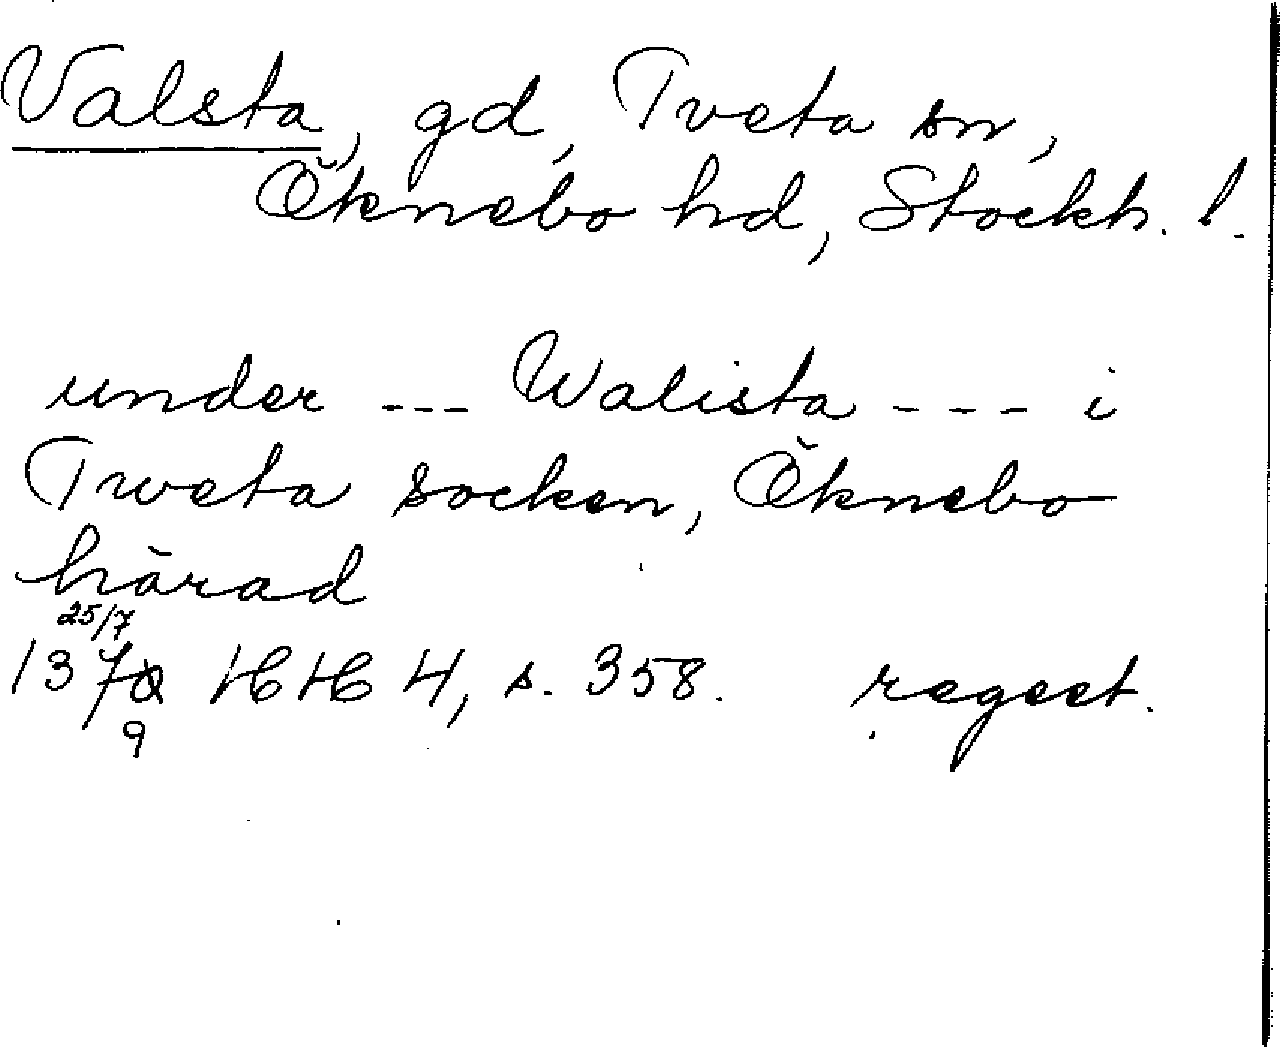 Valsta, gd, Tveta sn,
Öknebo hd, Stockh. l.
under --- Walista --- i
Tweta socken, Öknebo
härad
25/7
1370 HH 4, s. 358. regest.
9